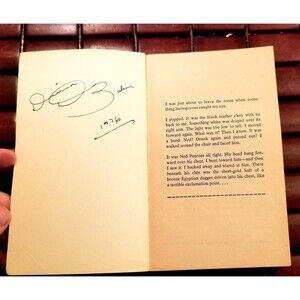 1976
I was just about to leave the room when something incongruous caught my eye.
I stopped. It was the black leather chair with its back to me. Something white was draped over its right arm. The light was too low to tell. I moved forward again. What was it? Then I knew. It was a hand! Ned? Drunk again and passed out? I walked around the chair and faced him.
It was Ned Pearose all right. His head hung forward over his chest. I bent toward him—and then I saw it. I backed away and stared at him. There beneath his chin was the short-gold haft of a bronze Egyptian dagger driven into his chest, like a terrible exclamation point. . . .